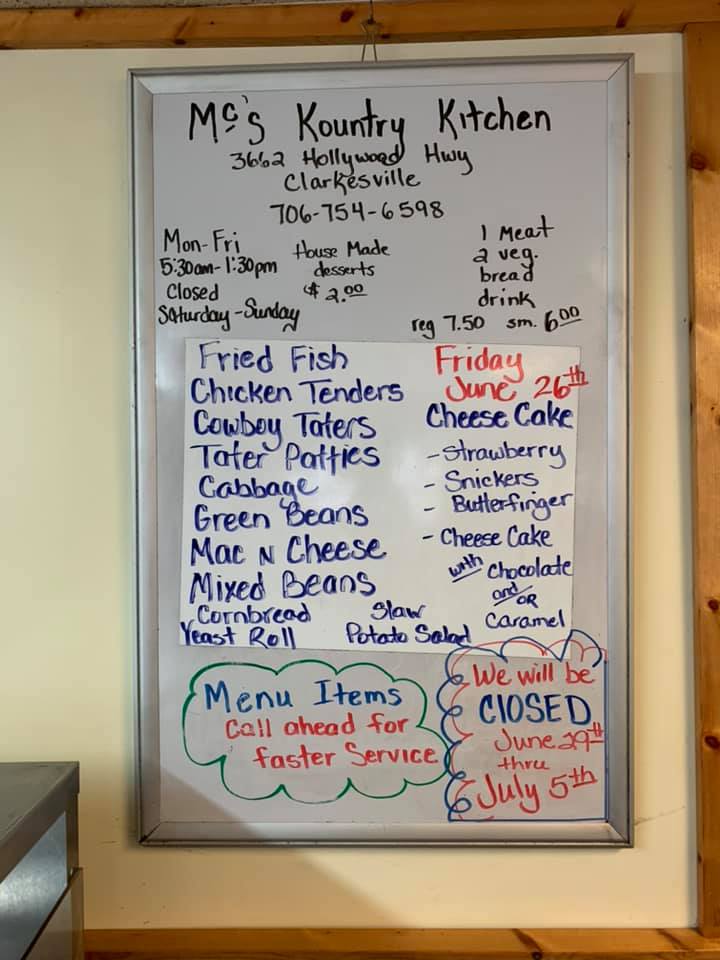 Mc's Kountry Kitchen
3662 Hollywood Hwy
Clarkesville
706-754-6598
Mon-Fri
5:30am-1:30pm
Closed
Saturday-Sunday
House Made
desserts
$2.00
1 Meat
2 veg.
bread
drink
reg 7.50 sm. 6.00
Fried Fish
Chicken Tenders
Cowboy Taters
Tater Patties
Cabbage
Green Beans
Mac N Cheese
Mixed Beans
Cornbread Slaw
Yeast Roll Potato Salad
Friday
June 26th
Cheese Cake
- Strawberry
- Snickers
- Butterfinger
- Cheese Cake
with Chocolate
and/OR
Caramel
Menu Items
Call ahead for
faster Service
We will be
ClOSED
June 29th
thru
July 5th